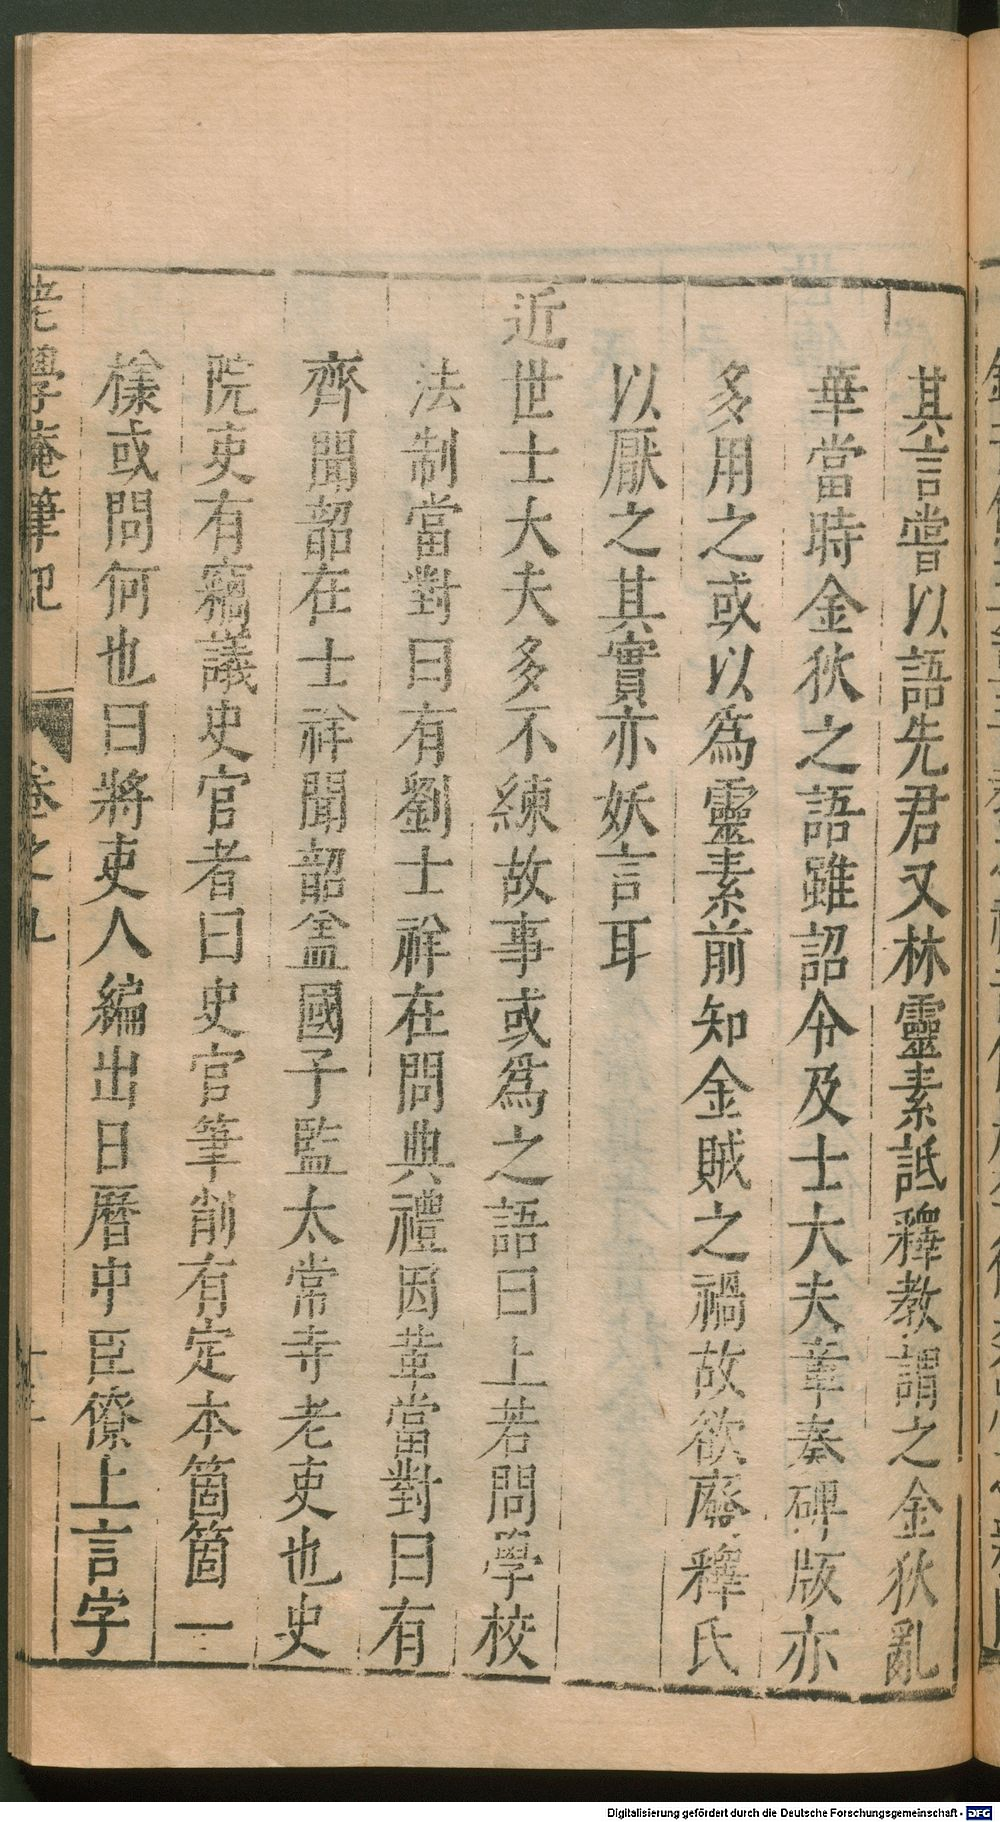 其言嘗以語先君又林靈素詆釋教謂之金狄亂
華當時金狄之語雖詔令及士大夫章奏碑版亦
多用之或以爲靈素前知金賊之禍故欲廢釋氏
以厭之其實亦妖言耳
近世士大夫多不練故事或爲之語曰上若問學校
法制當對曰有劉士祥在問典禮因革當對曰有
齊聞韶在士祥聞韶葢國子監太常寺老吏也史
院吏有竊議史官者曰史官筆削有定本箇箇一
樣或問何也曰將吏人編出日曆中臣僚上言字
老學庵筆記 卷之九
Digitalisierung gefördert durch die Deutsche Forschungsgemeinschaft - DFG